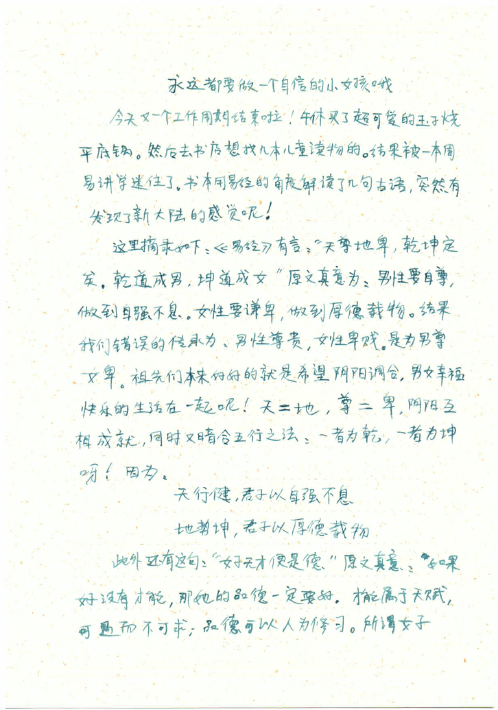 永远都要做一个自信的小女孩哦
今天又一个工作周期结束啦！午休买了超可爱的玉子烧
平底锅。然后去书店想找几本儿童读物的。结果被一本周
易讲学迷住了。书本周易经的角度解读了几句古语，突然有
发现了新大陆的感觉呢！
这里摘录如下：《易经》有言：“天尊地卑，乾坤定
矣。乾道成男，坤道成女”原文真意为：男性要自尊，
做到自强不息。女性要谦卑，做到厚德载物。结果
我们错误的传承为、男性尊贵，女性卑贱。是为男尊
女卑。祖先们本来好好的就是希望阴阳调合，男女幸福
快乐的生活在一起呢！天二地，尊二卑，阴阳互
相成就，同时又暗合五行之法：一者为乾，一者为坤
呀！因为。
天行健，君子以自强不息
地势坤，君子以厚德载物
此外还有这句：“女子无才便是德”原文真意：“如果
女子没有才能，那她的品德一定要好。才能属于天赋，
可遇而不可求；品德可以人为修习。所谓女子